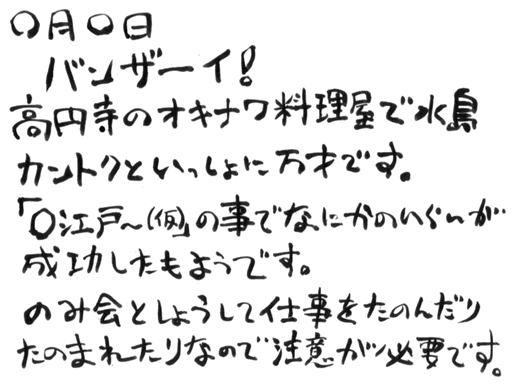 〇月〇日
バンザーイ!
高円寺のオキナワ料理屋で水島
カントクといっしょに万才です。
「〇江戸〜(仮)」の事でなにかのいくいが
成功したもようです。
のみ会としょうして仕事をたのんだり
たのまれたりなので注意が必要です。